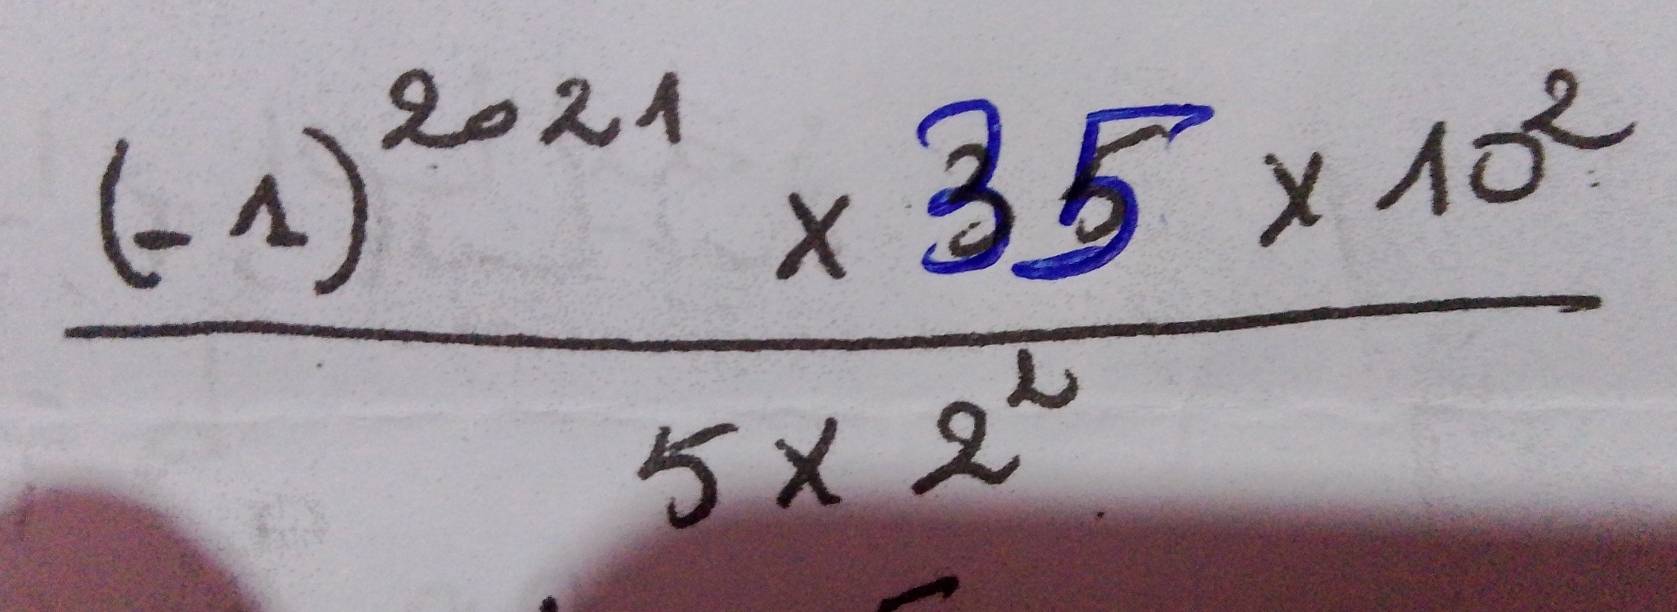 (-1)^2021 × 35 × 10^2
5 × 2^2